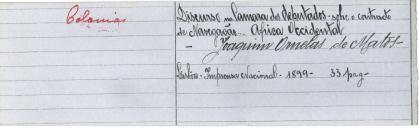 Colonias
Discurso na Camara dos Deputados - sobre o contracto
de Navegação - Africa Occidental
- Joaquim Ornelas de Matos -
Lisboa - Imprensa Nacional - 1899 - 33 pag -